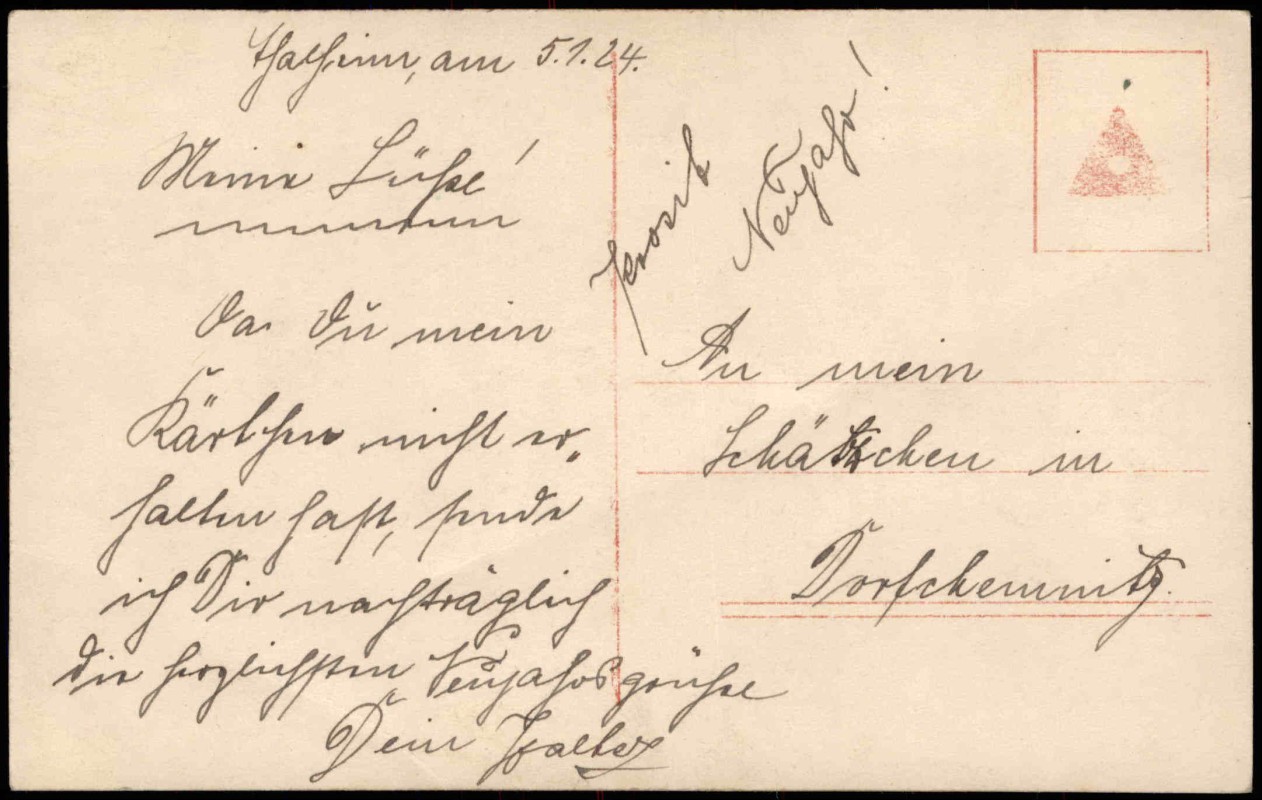 Thalheim, am 5.1.24.
Meine Süße!
Da Du mein
Kärtchen nicht er-
halten hast, sende
ich Dir nachträglich
die herzlichsten Neujahrsgrüße
Dein Walter
Prosit
Neujahr!
An mein
Schätzchen in
Dorfchemnitz.